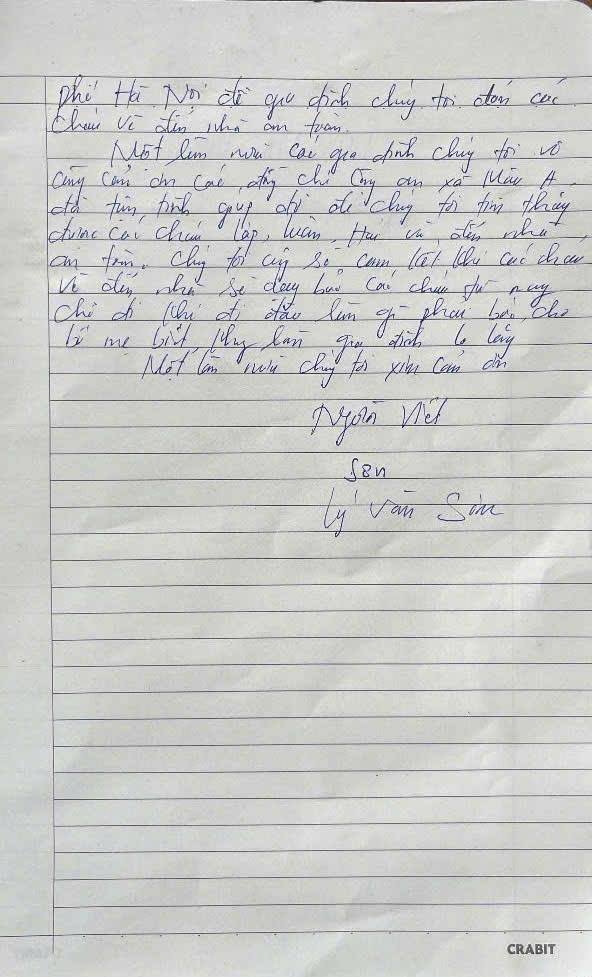 phố Hà Nội để gia đình chúng tôi đón các
cháu về đến nhà an toàn.
Một lần nữa các gia đình chúng tôi vô
cùng cảm ơn các đồng chí Công an xã Mậu A
đã tận tình giúp đỡ để chúng tôi tìm thấy
được các cháu Lập, Luân, Hai và đến nhà
an toàn. Chúng tôi cũng sẽ cam kết khi các cháu
về đến nhà sẽ dạy bảo các cháu từ nay
chở đi khi đi đâu làm gì phải báo cho
bố mẹ biết, không làm gia đình lo lắng
Một lần nữa chúng tôi xin cảm ơn
Người viết
Sơn
Lý Văn Sơn
CRABIT